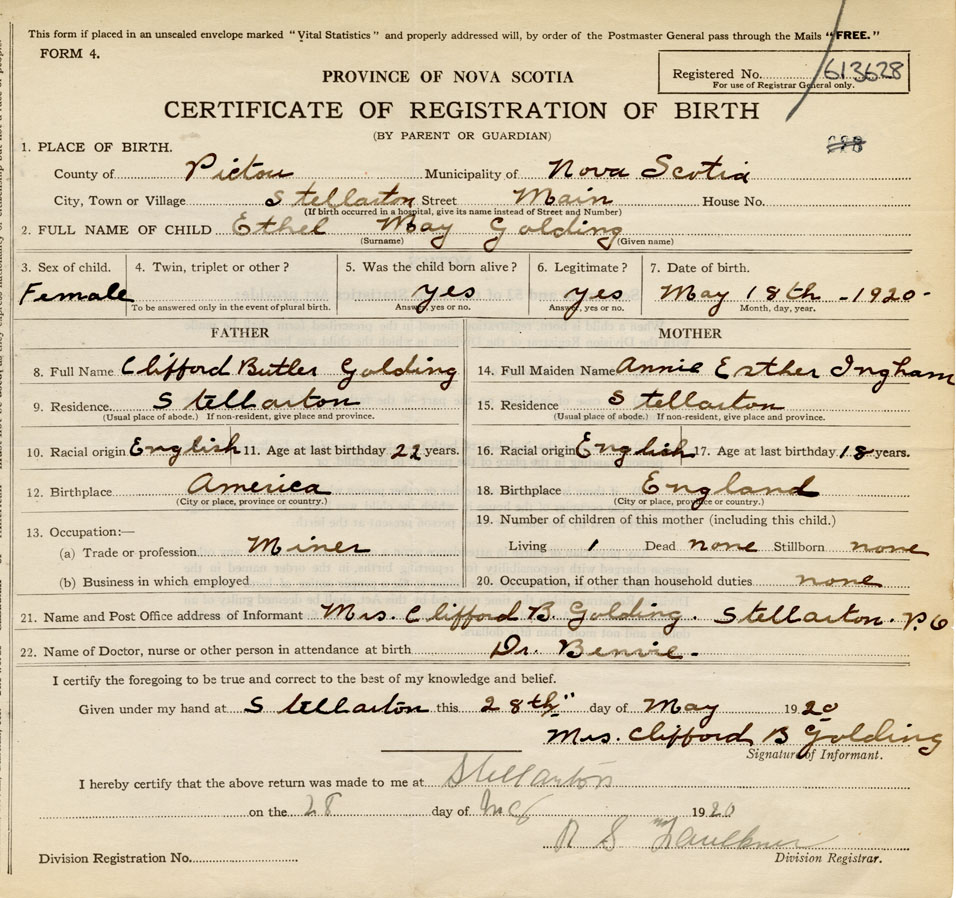 This form if placed in an unsealed envelope marked "Vital Statistics" and properly addressed will, by order of the Postmaster General pass through the Mails "FREE."
FORM 4.
Registered No. 613628
For use of Registrar General only.
PROVINCE OF NOVA SCOTIA
CERTIFICATE OF REGISTRATION OF BIRTH
(BY PARENT OR GUARDIAN)
1. PLACE OF BIRTH.
County of Pictou Municipality of Nova Scotia
City, Town or Village Stellarton Street Main House No.
(If birth occurred in a hospital, give its name instead of Street and Number)
2. FULL NAME OF CHILD Ethel May Golding
(Surname) (Given name)
3. Sex of child. 4. Twin, triplet or other? 5. Was the child born alive? 6. Legitimate? 7. Date of birth.
Female yes yes May 18th - 1920 -
To be answered only in the event of plural birth. Answer, yes or no. Answer, yes or no. Month, day, year.
FATHER MOTHER
8. Full Name Clifford Butler Golding 14. Full Maiden Name Annie Esther Ingham
9. Residence. Stellarton 15. Residence Stellarton
(Usual place of abode.) If non-resident, give place and province. (Usual place of abode.) If non-resident, give place and province.
10. Racial origin English 11. Age at last birthday 22 years. 16. Racial origin English 17. Age at last birthday 18 years.
12. Birthplace America 18. Birthplace England
(City or place, province or country.) (City or place, province or country.)
13. Occupation:— 19. Number of children of this mother (including this child.)
(a) Trade or profession Miner Living 1 Dead none Stillborn none
(b) Business in which employed 20. Occupation, if other than household duties none
21. Name and Post Office address of Informant Mrs. Clifford B. Golding. Stellarton. P. O
22. Name of Doctor, nurse or other person in attendance at birth Dr. Benvie.
I certify the foregoing to be true and correct to the best of my knowledge and belief.
Given under my hand at Stellarton this 28th day of May 1920
Mrs. Clifford B Golding
Signature of Informant.
I hereby certify that the above return was made to me at Stellarton
on the 28 day of 1920
R S Faulkner
Division Registration No. Division Registrar.